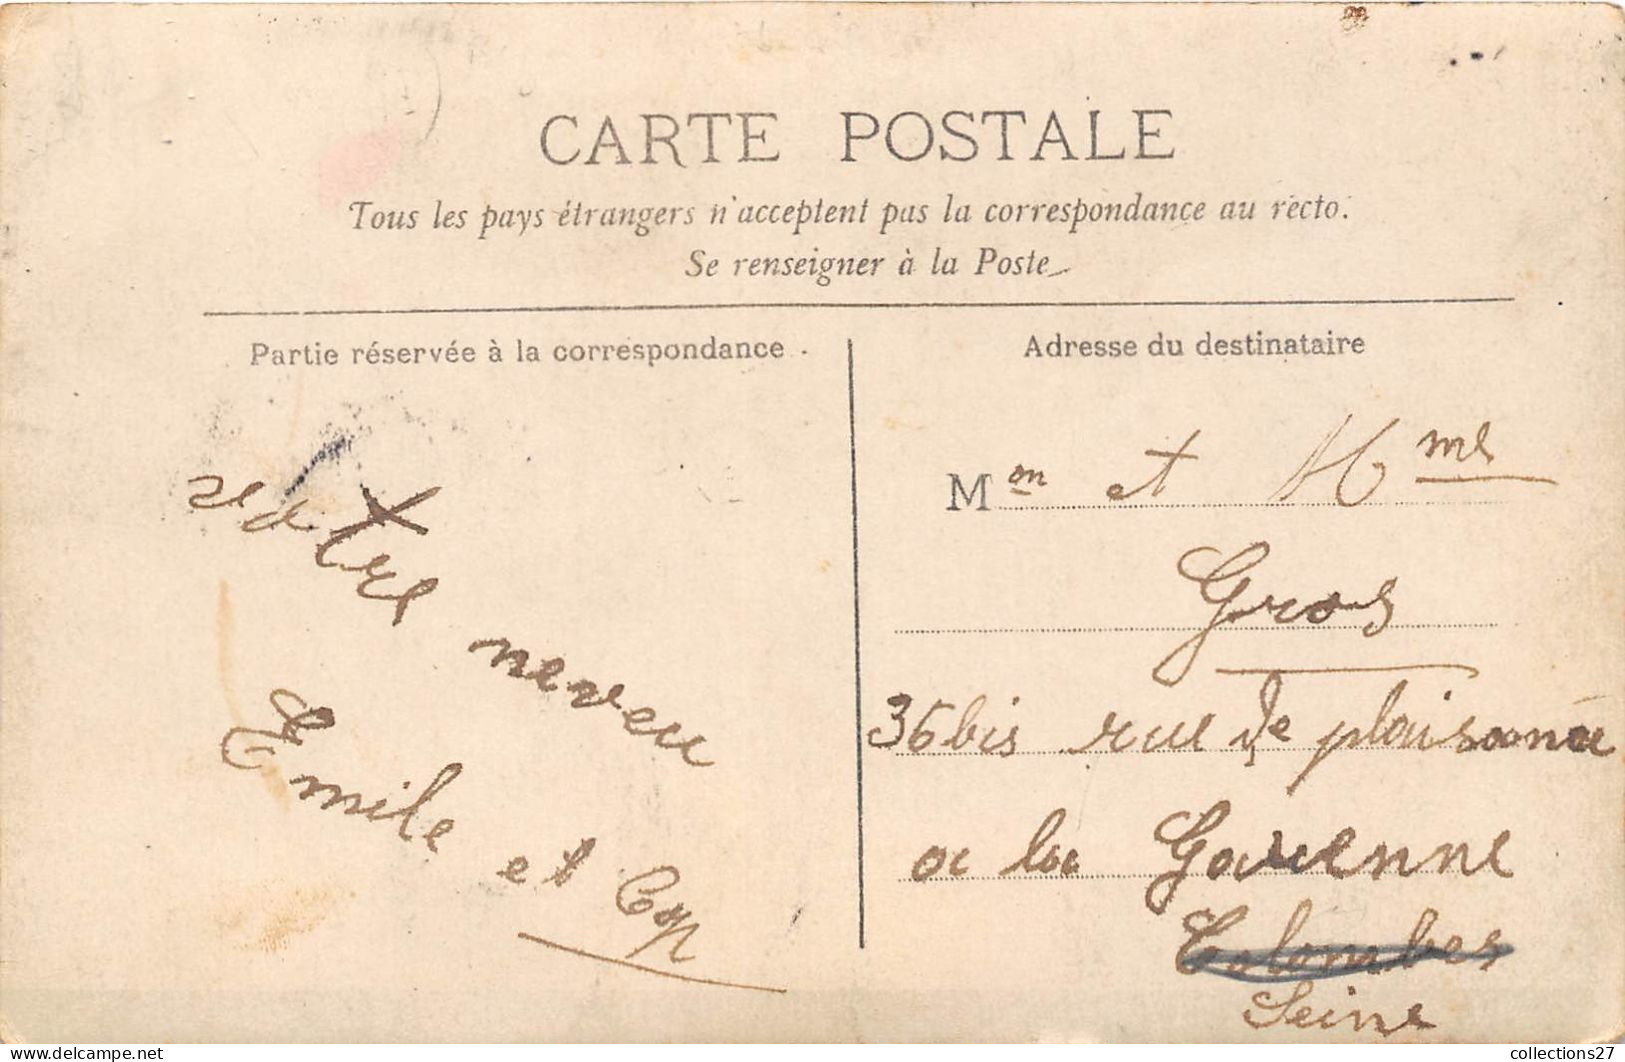 CARTE POSTALE
Tous les pays étrangers n'acceptent pas la correspondance au recto.
Se renseigner à la Poste
Partie réservée à la correspondance
votre neveu
Emile et
Adresse du destinataire
Mon et Mme
Gros
36bis rue de plaisance
a la Garenne
Colombes
Seine
collections27